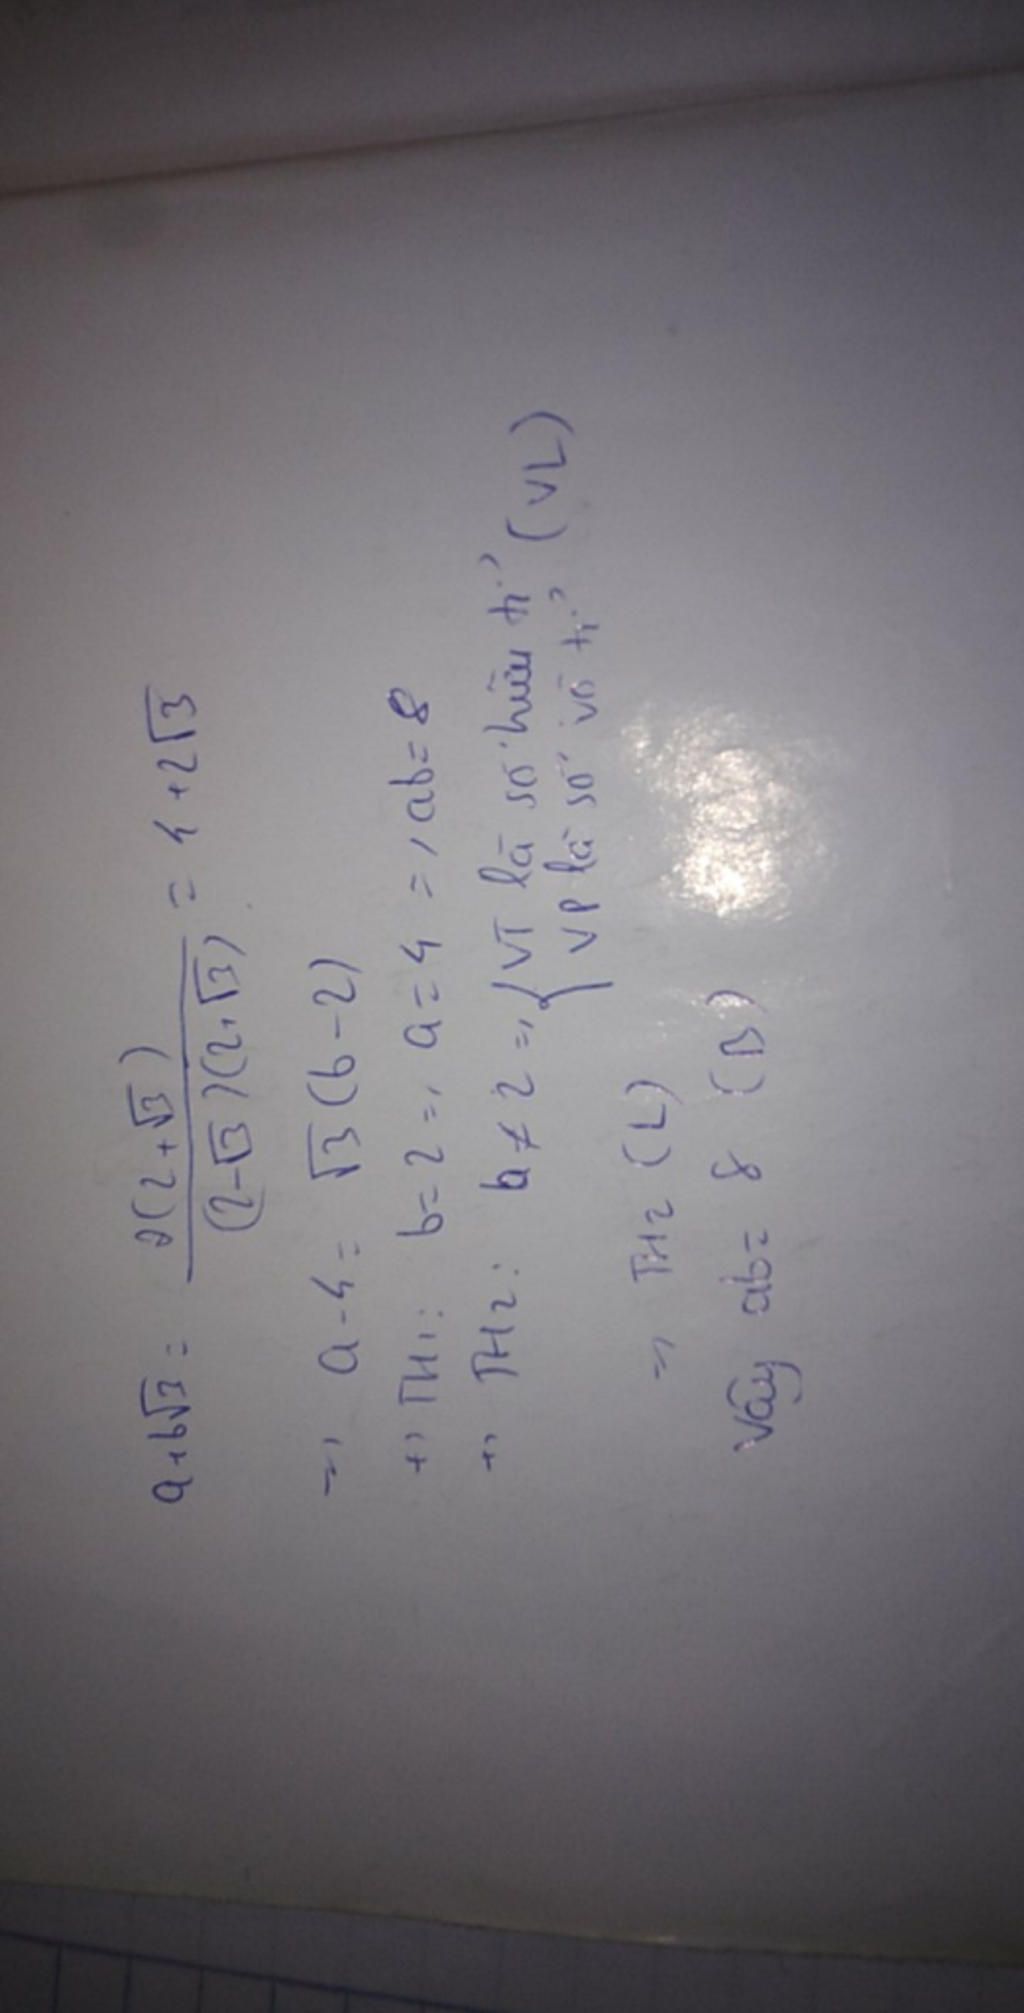 a+b√3 = 2(2+√3) / (2-√3)(2+√3) = 4+2√3
=> a-4 = √3(b-2)
+) TH1: b=2 => a=4 => ab=8
+) TH2: b≠2 => { VT là số hữu tỉ (VL)
VP là số vô tỉ
=> TH2 (L)
Vậy ab= 8 (B)